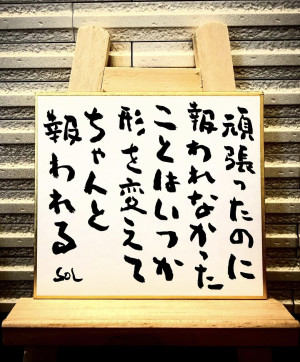 頑張ったのに
報われなかった
ことはいつか
形を変えて
ちゃんと
報われる
SOL